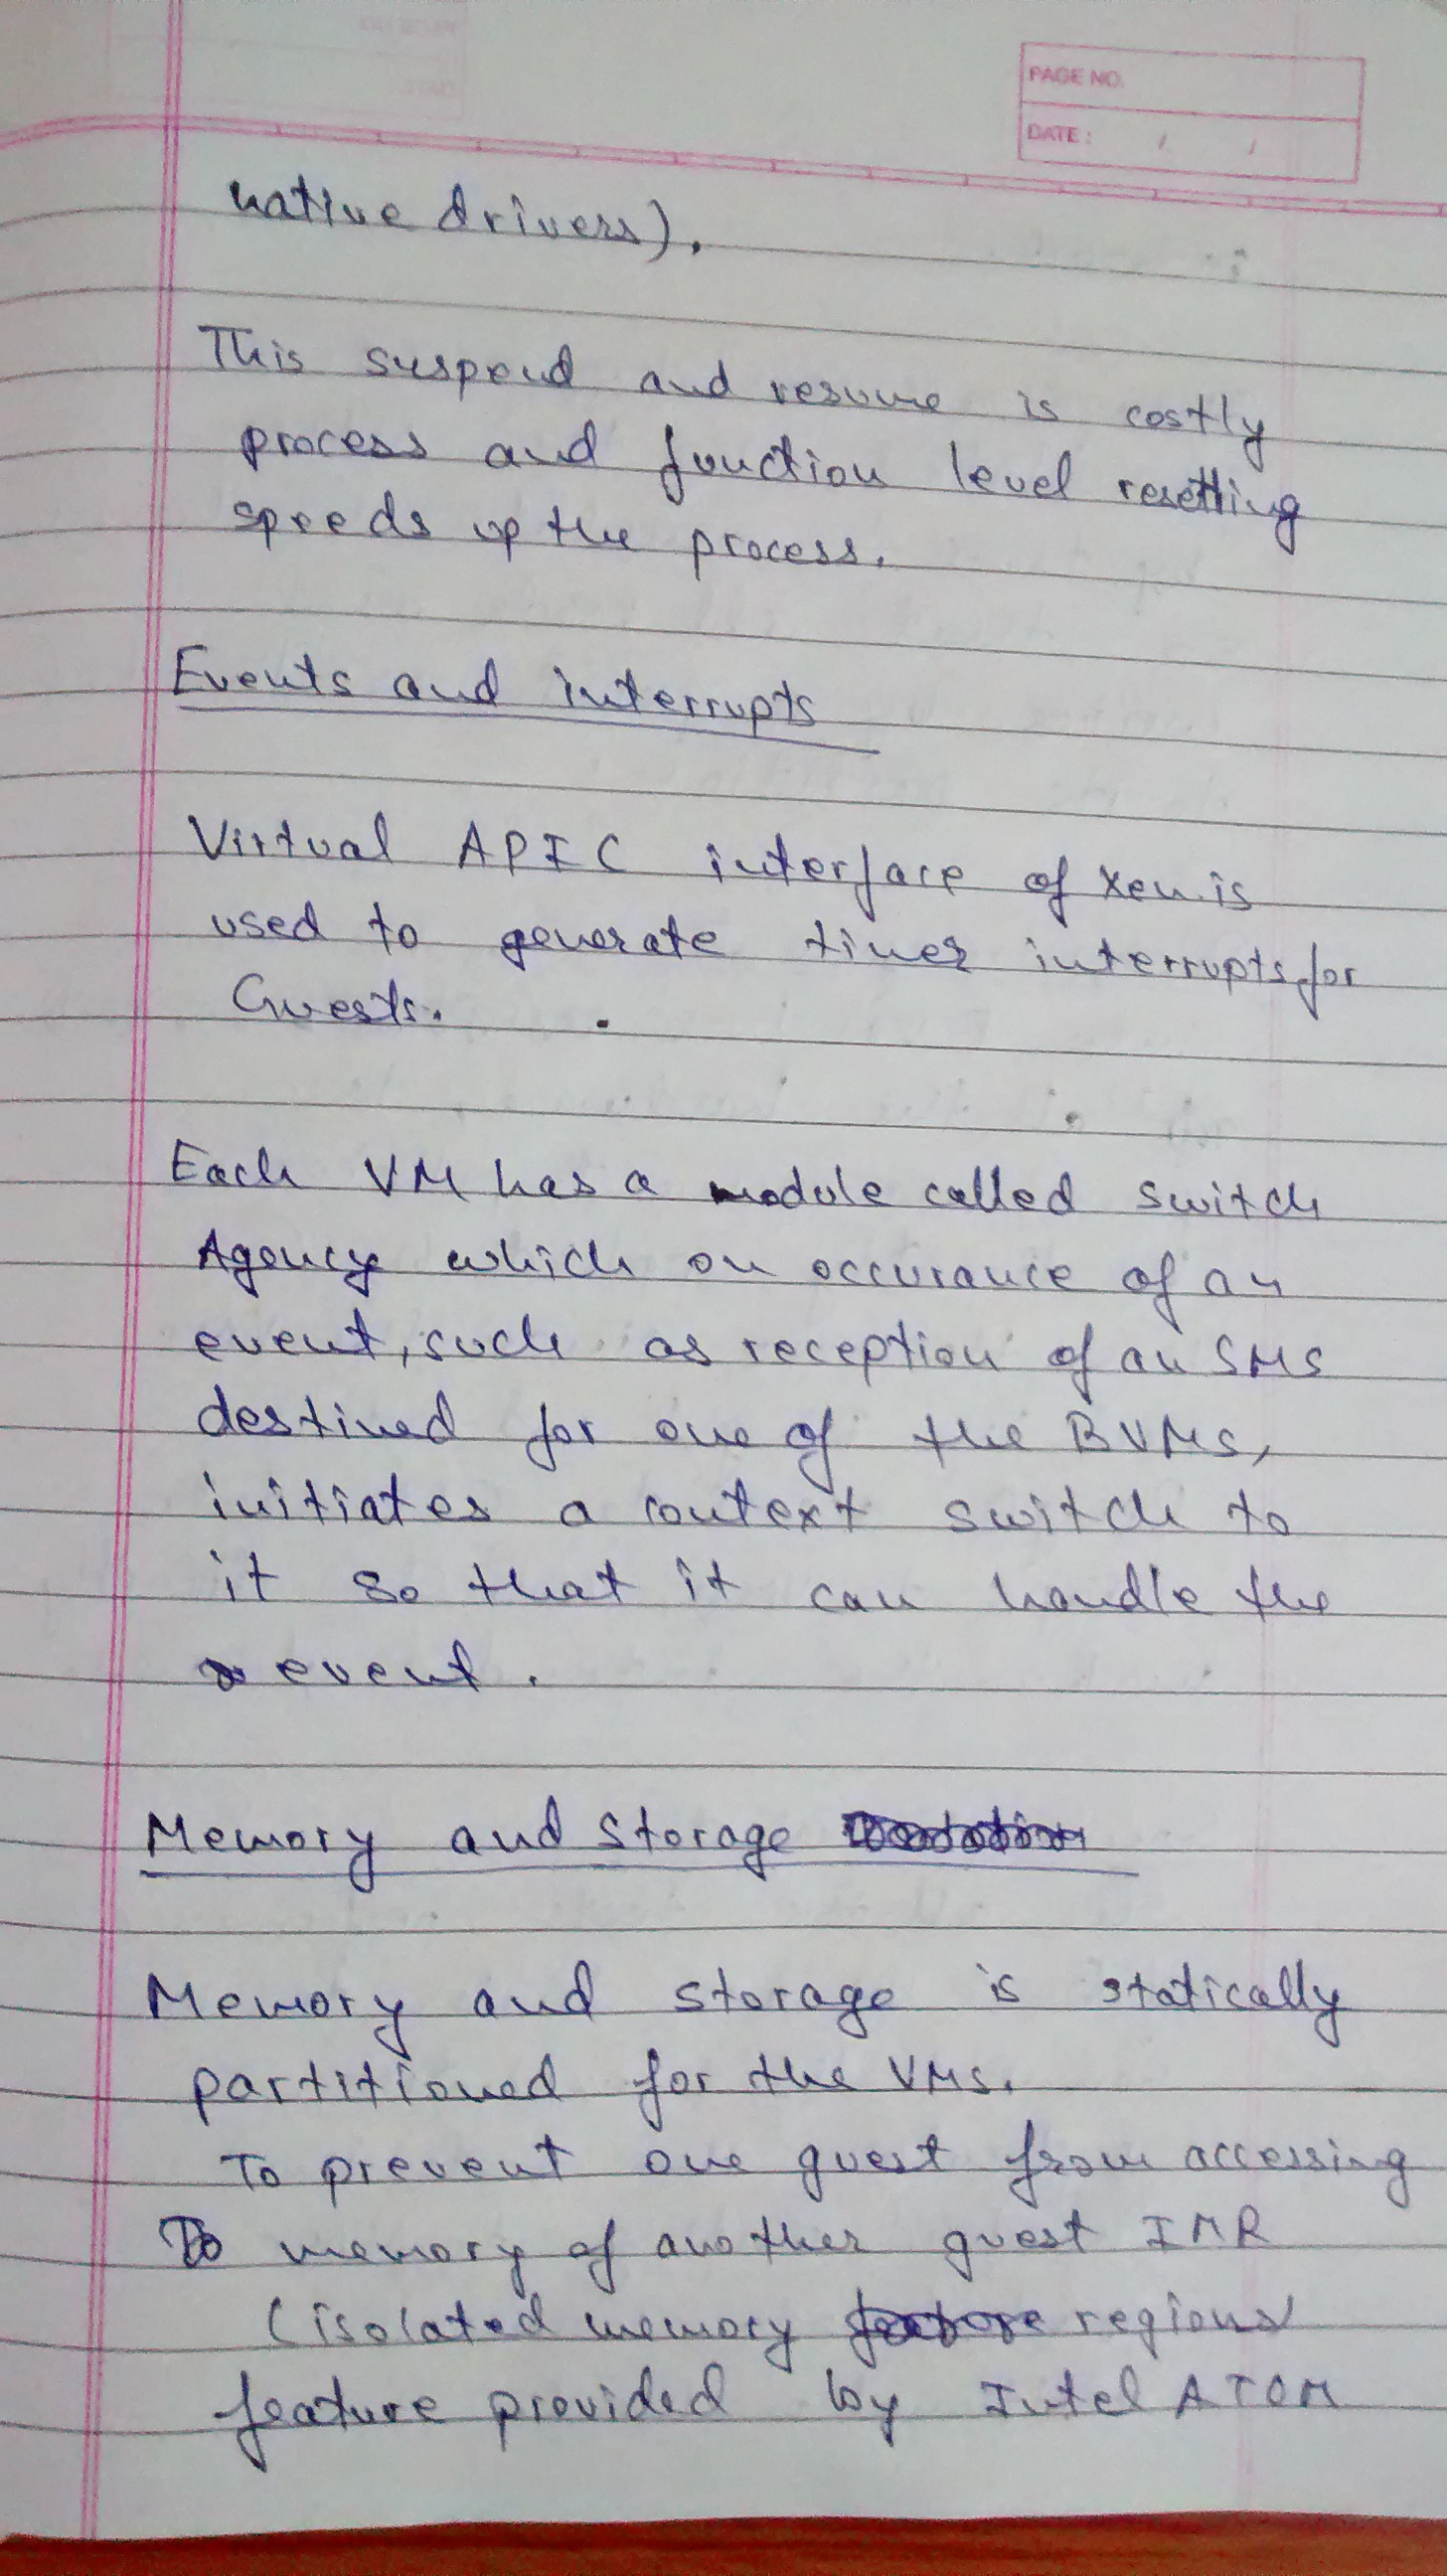 PAGE NO.
DATE: / /
native drivers).
This suspend and resume is costly
process and function level resetting
speeds up the process.
Events and interrupts
Virtual APIC interface of Xen is
used to generate timer interrupts for
Guests.
Each VM has a module called switch
Agency which on occurance of an
event, such as reception of an SMS
destined for one of the BVMs,
initiates a context switch to
it so that it can handle the
event.
Memory and storage
Memory and storage is statically
partitioned for the VMs.
To prevent one guest from accessing
To memory of another guest IMR
(isolated memory feature regions
feature provided by Intel ATOM